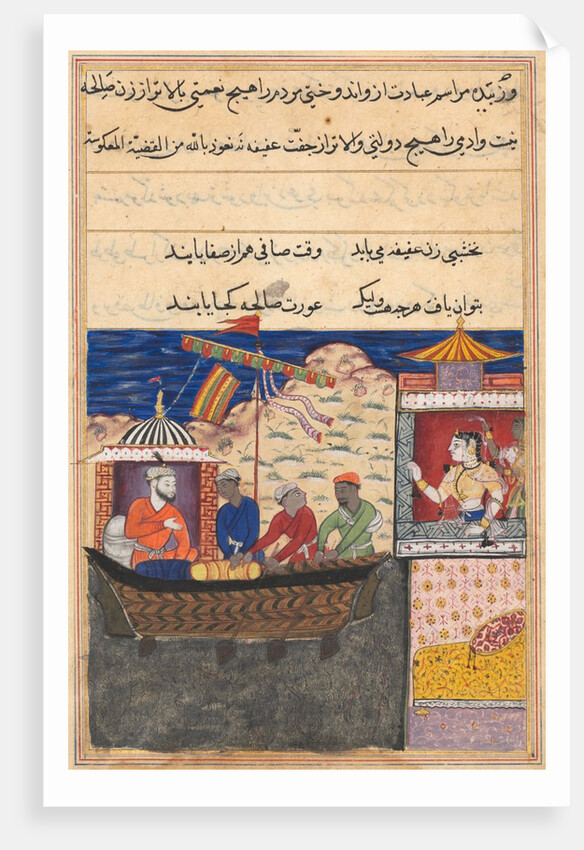 ورزیده مراسم عبادت از واندوختی مردم را هیچ نعمتی بالاتر از زن صالحه
نیست وادمی را هیچ دولتی والاتر از جفت عفیفه نه نعوذ بالله من القضیة المعکوسة
نخشبی زن عفیفه می باید وقت صافی هم از صفا یابند
بتوان یافت هرچه هست ولیک عورت صالحه کجا یابند